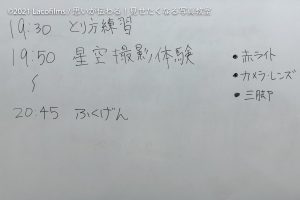 ©2021 Lacofilms / 思いが伝わる！見せたくなる写真教室
19:30 とり方練習
19:50 星空撮影体験
〜
20.45 ふくげん
• 赤ライト
• カメラ・レンズ
• 三脚